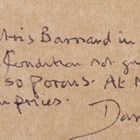 tris Barnard in
Condition not gu
so Porous. At M
n prices.
Dav